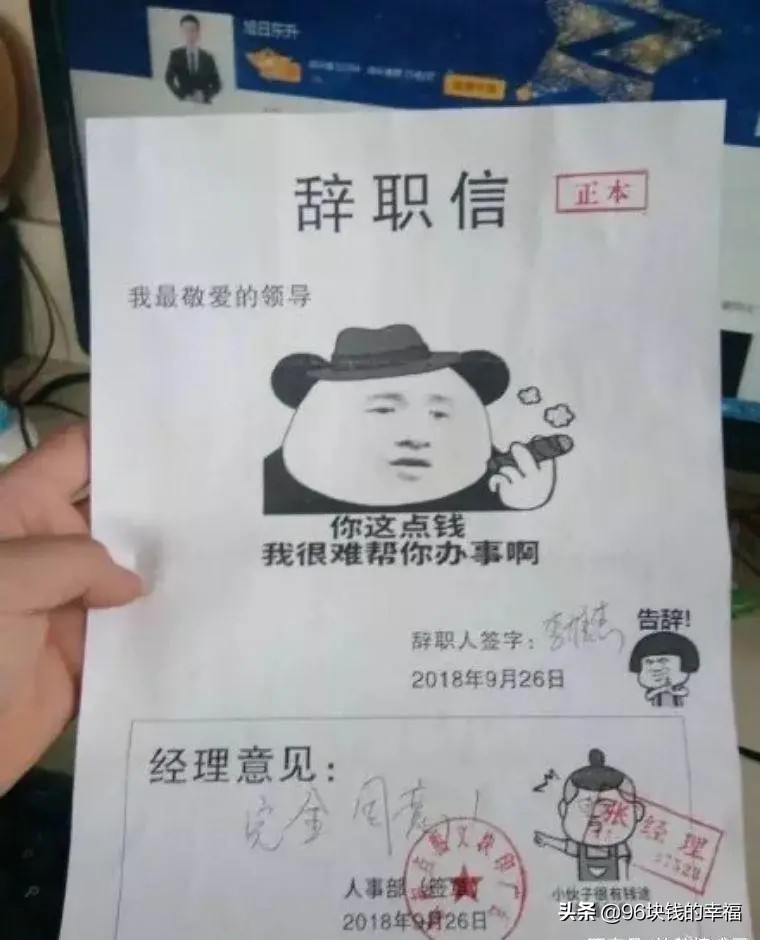 旭日东升
辞职信
正本
我最敬爱的领导
你这点钱
我很难帮你办事啊
告辞!
辞职人签字:
2018年9月26日
经理意见:
完全同意!
张经理
人事部(签章)
小伙子很有钱途
2018年9月26日
头条 @96块钱的幸福